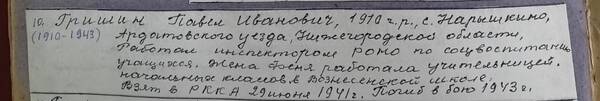 10. Гришин Павел Иванович, 1910 г.р., с. Нарышкино,
(1910-1943) Ардатовского уезда, Нижегородской области,
Работал инспектором РОНО по соцвоспитанию
учащихся. Жена Феня работала учительницей
начальных классов в Вознесенской школе.
Взят в РККА 29 июня 1941 г. Погиб в бою 1943 г.